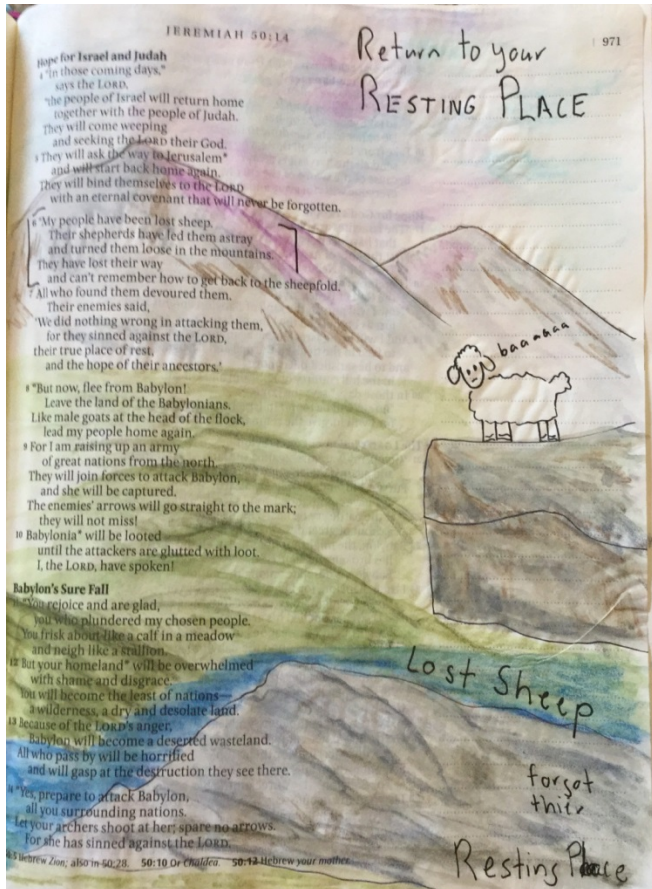 JEREMIAH 50:14
971
Return to your
RESTING PLACE
Hope for Israel and Judah
4 "In those coming days,"
says the LORD,
"the people of Israel will return home
together with the people of Judah.
They will come weeping
and seeking the LORD their God.
5 They will ask the way to Jerusalem*
and will start back home again.
They will bind themselves to the LORD
with an eternal covenant that will never be forgotten.
6 "My people have been lost sheep.
Their shepherds have led them astray
and turned them loose in the mountains.
They have lost their way
and can't remember how to get back to the sheepfold.
7 All who found them devoured them.
Their enemies said,
'We did nothing wrong in attacking them,
for they sinned against the LORD,
their true place of rest,
and the hope of their ancestors.'
baaaaaa
8 "But now, flee from Babylon!
Leave the land of the Babylonians.
Like male goats at the head of the flock,
lead my people home again.
9 For I am raising up an army
of great nations from the north.
They will join forces to attack Babylon,
and she will be captured.
The enemies' arrows will go straight to the mark;
they will not miss!
10 Babylonia* will be looted
until the attackers are glutted with loot.
I, the LORD, have spoken!
Babylon's Sure Fall
"You rejoice and are glad,
you who plundered my chosen people.
You frisk about like a calf in a meadow
and neigh like a stallion.
12 But your homeland* will be overwhelmed
with shame and disgrace.
You will become the least of nations—
a wilderness, a dry and desolate land.
13 Because of the LORD's anger,
Babylon will become a deserted wasteland.
All who pass by will be horrified
and will gasp at the destruction they see there.
14 "Yes, prepare to attack Babylon,
all you surrounding nations.
Let your archers shoot at her; spare no arrows.
For she has sinned against the LORD.
Lost Sheep
forgot
thier
Resting Place
50:5 Hebrew Zion; also in 50:28. 50:10 Or Chaldea. 50:12 Hebrew your mother.